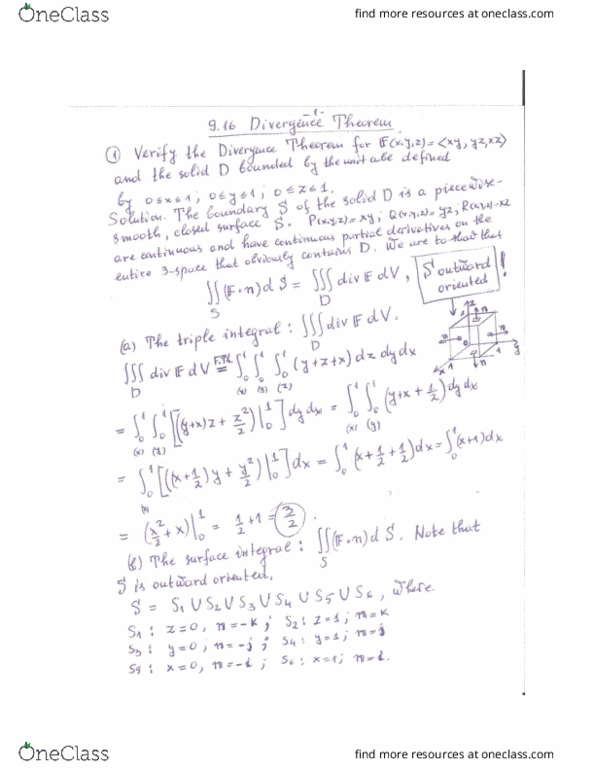 OneClass
find more resources at oneclass.com
-1-
9.16 Divergence Theorem
① Verify the Divergence Theorem for F(x,y,z)=<xy, yz, xz>
and the solid D bounded by the unit cube defined
by 0≤x≤1; 0≤y≤1; 0≤z≤1.
Solution. The boundary S of the solid D is a piecewise-
smooth, closed surface S. P(x,y,z)=xy; Q(x,y,z)=yz; R(x,y,z)=xz
are continuous and have continuous partial derivatives on the
entire 3-space that obviously contains D. We are to show that
∬_S (F·n)dS = ∭_D div F dV, S outward oriented !
(a) The triple integral: ∭_D div F dV.
∭_D div F dV = ∫₀¹ ∫₀¹ ∫₀¹ (y+z+x) dz dy dx
(x) (y) (z)
= ∫₀¹ ∫₀¹ [((y+x)z + z²/2)|₀¹] dy dx = ∫₀¹ ∫₀¹ (y+x+1/2) dy dx
= ∫₀¹ [((x+1/2)y + y²/2)|₀¹] dx = ∫₀¹ (x+1/2+1/2)dx = ∫₀¹ (x+1)dx
= (x²/2 + x)|₀¹ = 1/2 + 1 = 3/2.
(b) The surface integral: ∬_S (F·n) dS. Note that
S is outward oriented.
S = S₁ ∪ S₂ ∪ S₃ ∪ S₄ ∪ S₅ ∪ S₆, where
S₁: z=0, n=-k; S₂: z=1; n=k
S₃: y=0; n=-j; S₄: y=1; n=j
S₅: x=0, n=-i; S₆: x=1; n=i.
OneClass
find more resources at oneclass.com